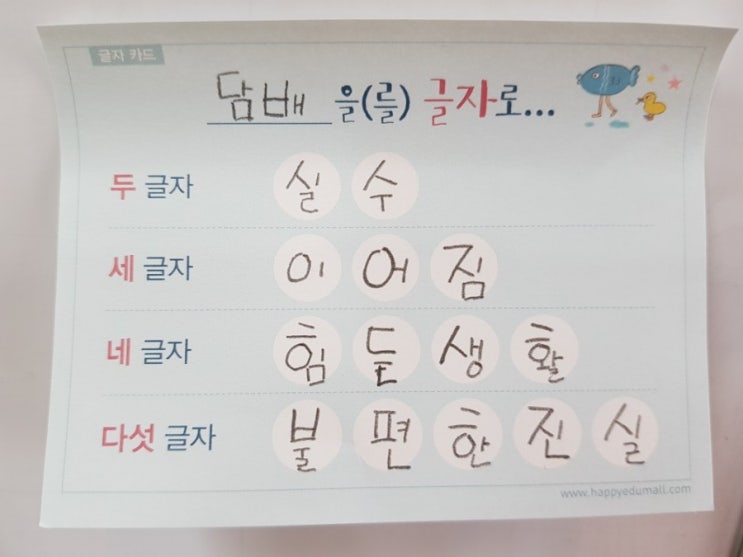 글자 카드
담배 을(를) 글자로...
두 글자 실수
세 글자 이어짐
네 글자 힘든생활
다섯 글자 불편한진실
www.happyedumall.com